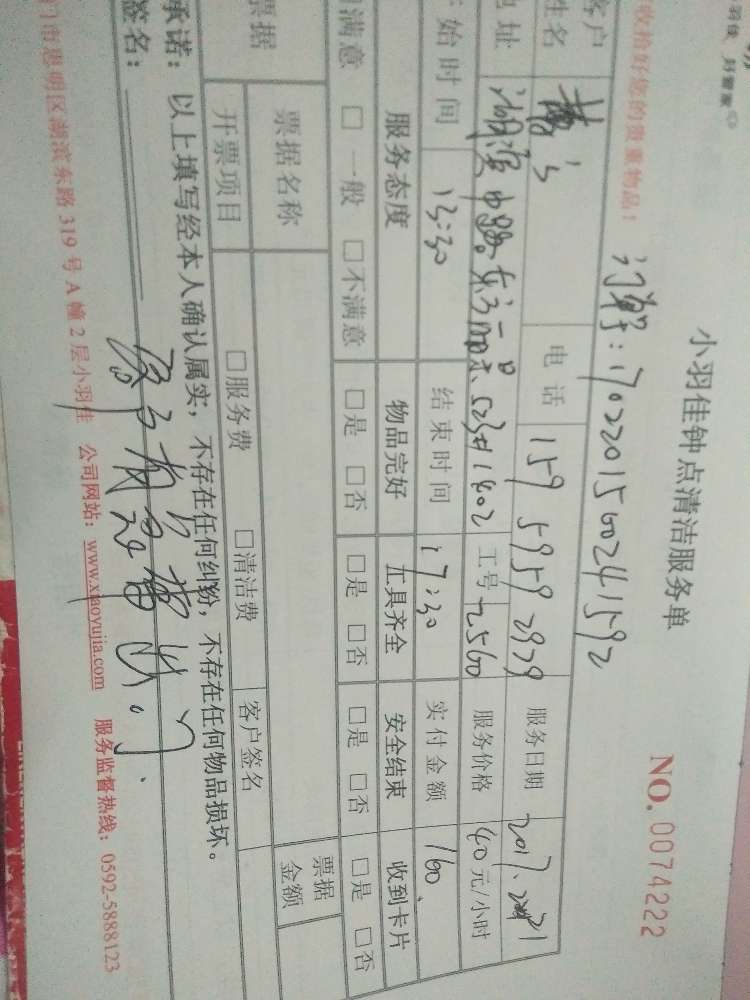 羽佳 好管家
收拾好您的贵重物品！
小羽佳钟点清洁服务单
NO. 0074222
1702201560241592
客户姓名 电话 159 5959 2979 服务日期
地址 湖滨中路 工号 2560 服务价格 40元/小时
开始时间 13:30 结束时间 17:30 实付金额 160.
服务态度 物品完好 工具齐全 安全结束 收到卡片
满意 □ 一般 □ 不满意 □是 □否 □是 □否 □是 □否 □是 □否
票据 票据名称 票据金额
开票项目 □服务费 □清洁费 客户签名
承诺：以上填写经本人确认属实，不存在任何纠纷，不存在任何物品损坏。
签名：
门市思明区湖滨东路319号A幢2层小羽佳 公司网站：www.xiaoyujia.com 服务监督热线：0592-5888123